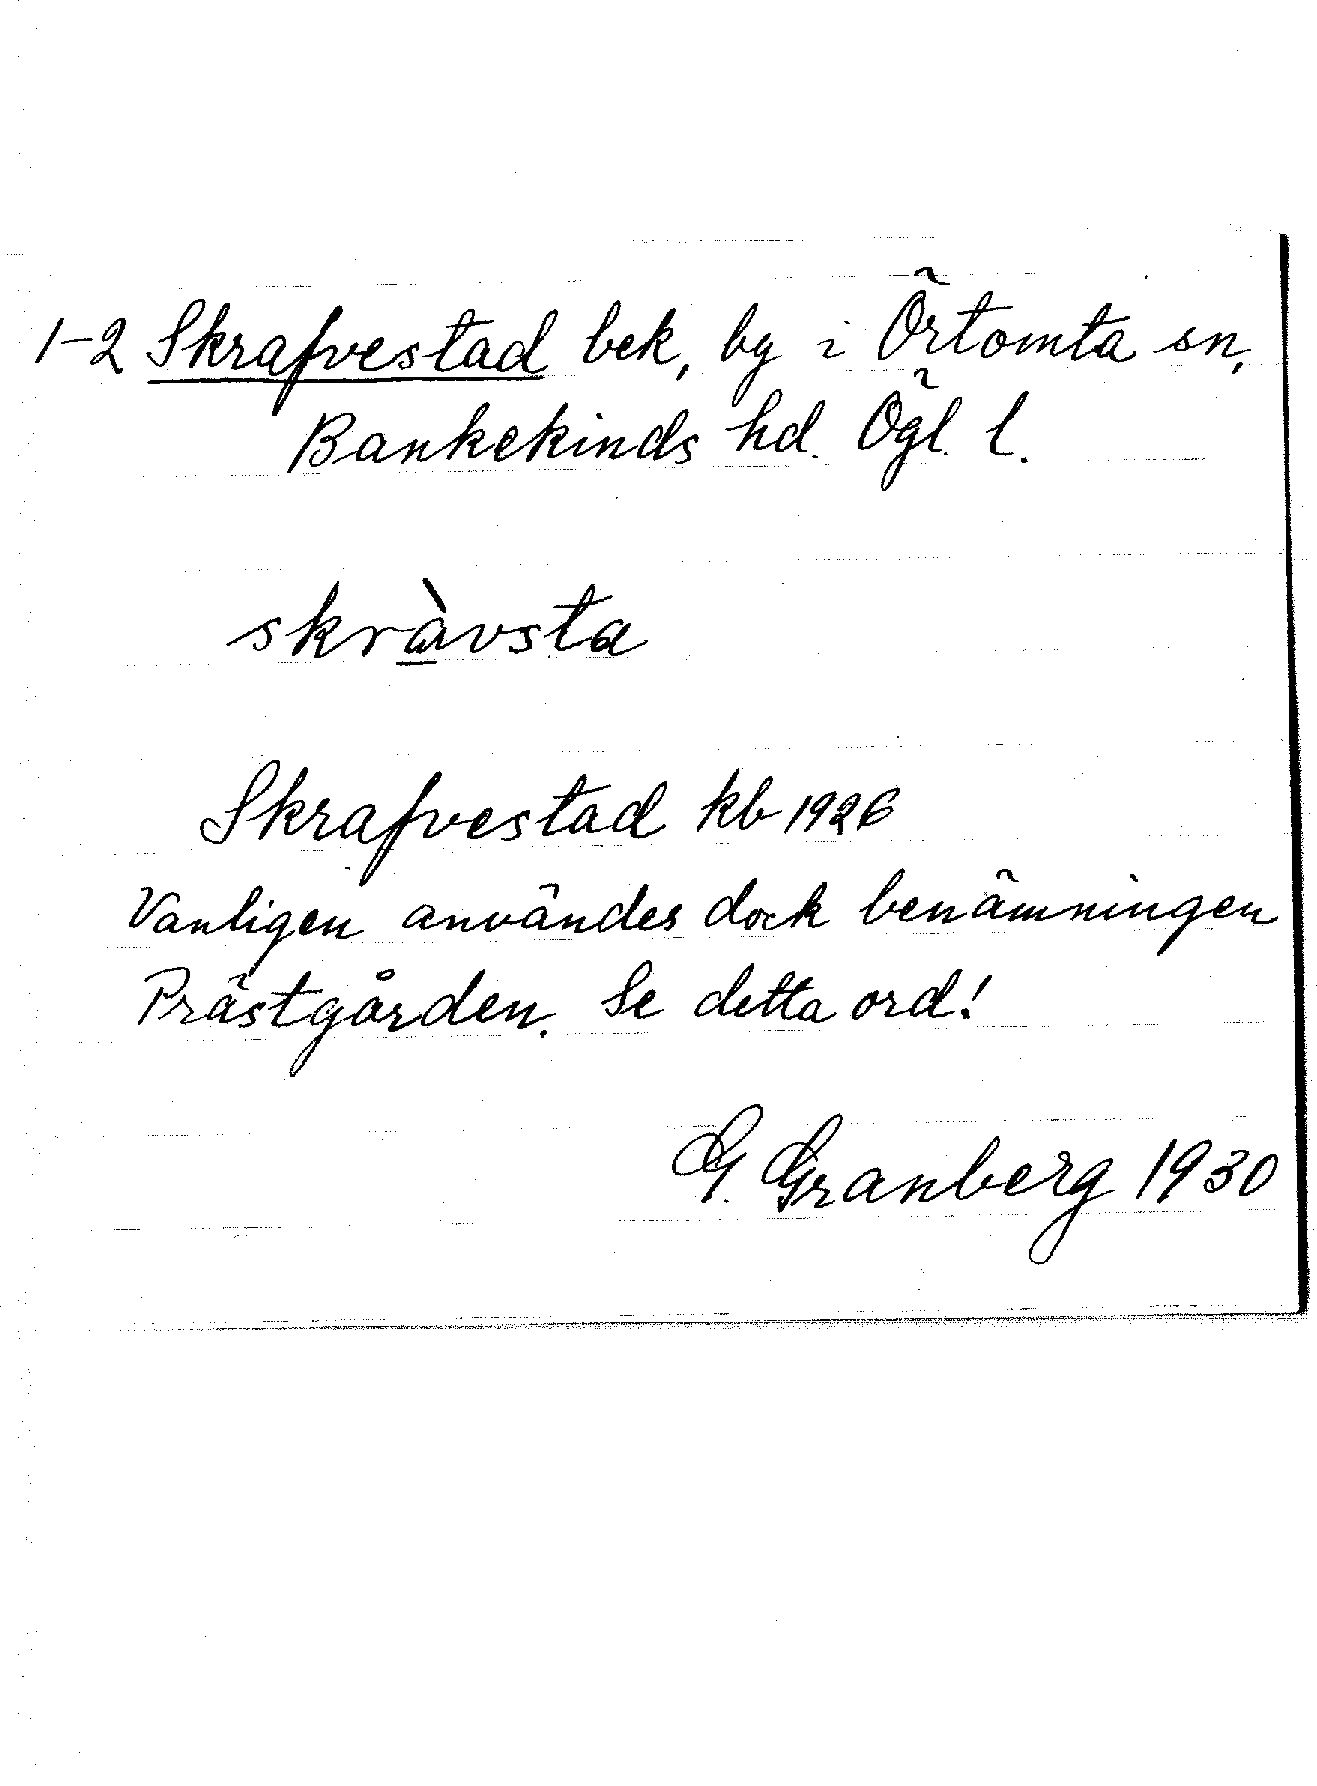 1-2 Skrafvestad bek, by i Örtomta sn,
Bankekinds hd. Ögl. l.
skràvsta
Skrafvestad kb 1926
Vanligen användes dock benämningen
Prästgården. Se detta ord!
G. Granberg 1930